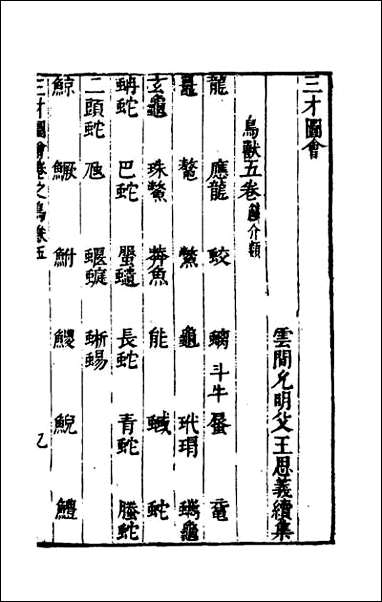 三才圖會
雲間允明父王思義續集
鳥獸五卷 鱗介類
龍 應龍 蛟 螭 斗牛 蜃
鼇 鱉 龜 玳瑁
玄龜 珠鱉 莾魚 能 蜮 蛇
蚺蛇 巴蛇 長蛇 青蛇 螣蛇
二頭蛇 虺 蝘蜓 蜥蜴
鯨 鱖 鮒 鯢 鱧
三才圖會卷之鳥獸五